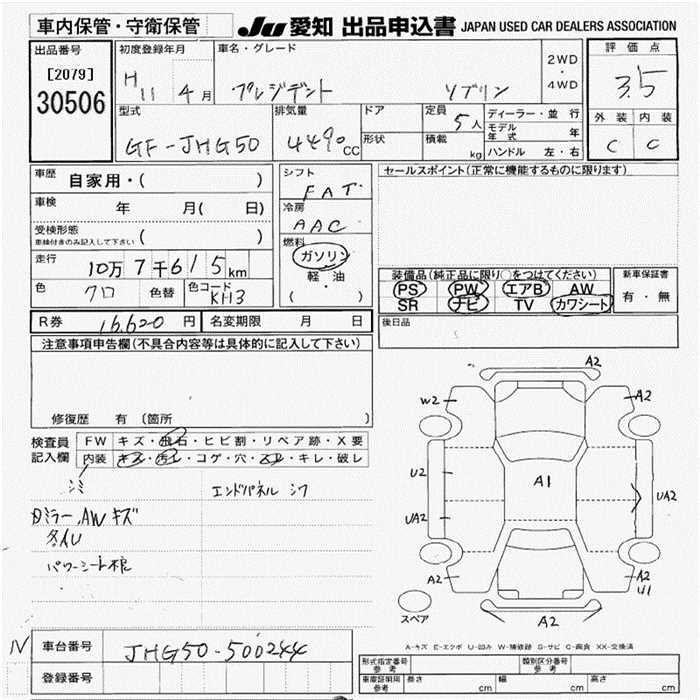 車内保管・守衛保管 JU 愛知 出品申込書 JAPAN USED CAR DEALERS ASSOCIATION
出品番号 初度登録年月 車名・グレード 2WD・4WD 評価点
[2079] H11 4月 プレジデント ソブリン 3.5
30506
型式 排気量 ドア 定員 5人 ディーラー・並行 外装 内装
GF-JHG50 4490cc 形状 積載 kg モデル年式 年 C C
ハンドル 左・右
車歴 自家用・( ) シフト FAT セールスポイント(正常に機能するものに限ります)
車検 年 月( 日) 冷房 AAC
受検形態 車検付きのみ記入して下さい ( ) 燃料 ガソリン
走行 10万7千615km 軽・油 装備品(純正品に限り○をつけてください) 新車保証書
色 クロ 色替 色コード KH3 ( ) PS PW エアB AW 有・無
SR ナビ TV カワシート
R券 16,620円 名変期限 月 日 後日品
注意事項申告欄(不具合内容等は具体的に記入して下さい)
修復歴 有 (箇所 )
検査員記入欄 FW キズ・飛石・ヒビ割・リペア跡・X要
内装 キズ・汚レ・コゲ・穴・スレ・キレ・破レ
シミ エンドパネル シワ
ミラー、AWキズ
パワーシート
A2
W2 A2
U2 A1 UA2
UA2
A2 A2
U1
スペア A2
A-キズ E-エクボ U-凹み W-補修跡 S-サビ C-腐食 XX-交換済
車台番号 JHG50-500244
登録番号
型式指定番号 参考 類別区分番号 参考
車庫証明用 参考 長さ cm 幅 cm 高さ cm